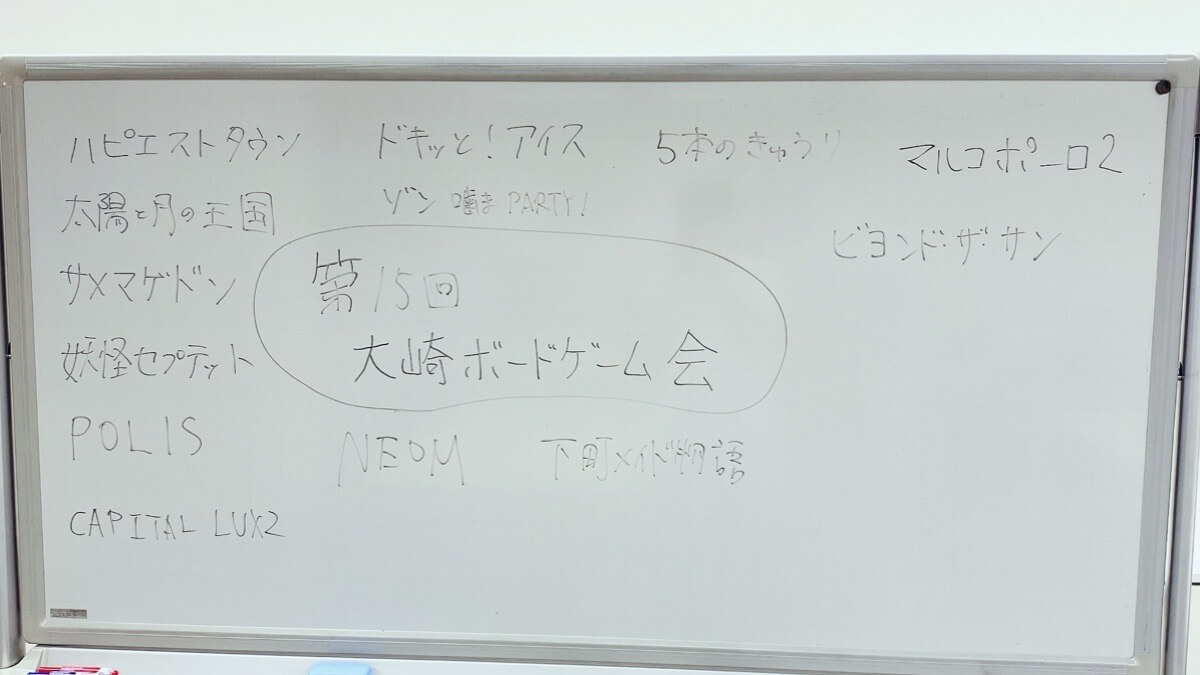 ハピエストタウン
ドキッと!アイス
5本のきゅうり
マルコポーロ2
太陽と月の王国
ゾン噛まPARTY!
ビヨンド・ザ・サン
サメマゲドン
第15回
大崎ボードゲーム会
妖怪セプテット
POLIS
NEOM
下町メイド物語
CAPITAL LUX2